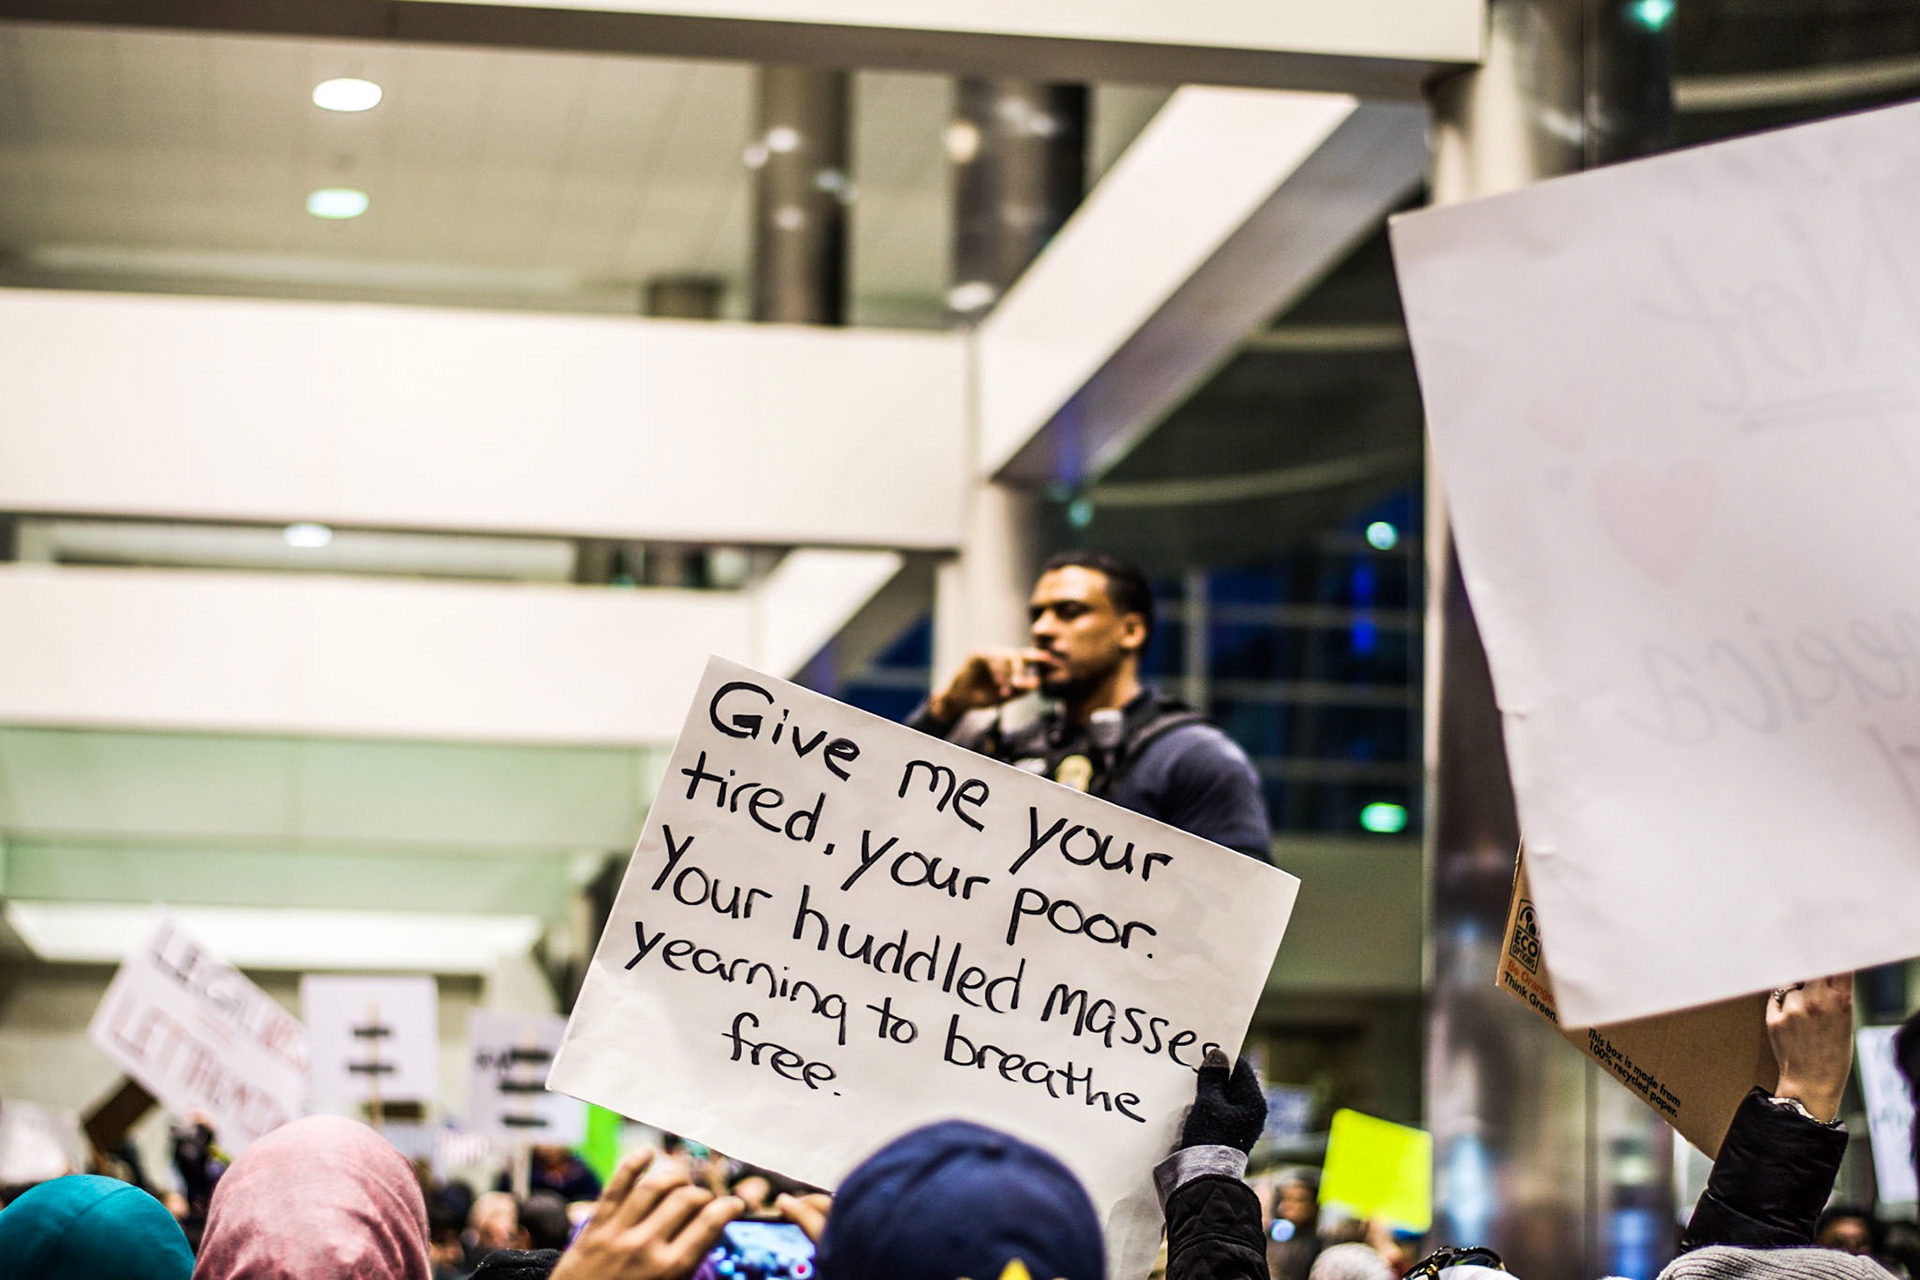 Give me your
tired, your poor.
Your huddled masses
yearning to breathe
free.
ECO
OPTIONS
Be Orange.
Think Green.
This box is made from
100% recycled paper.
Not
LEGAL